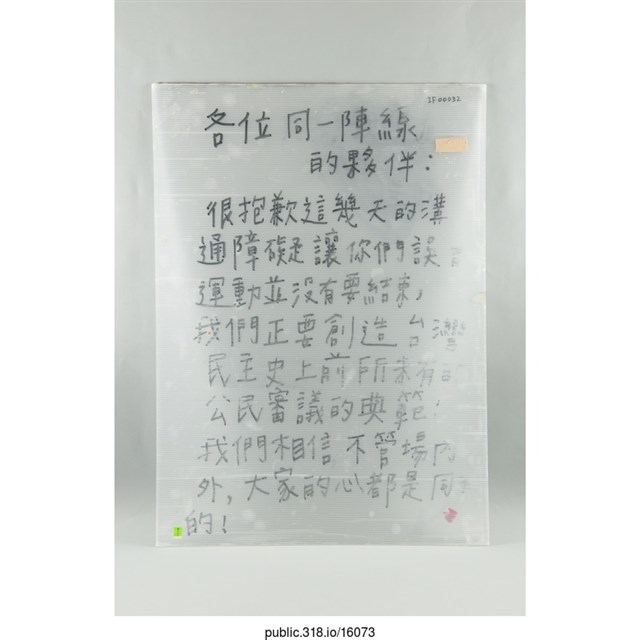 IF00032
各位同一陣線
的夥伴：
很抱歉這幾天的溝
通障礙讓你們誤
運動並沒有要結束，
我們正要創造台灣
民主史上前所未有的
公民審議的典範；
我們相信不管場內
外，大家的心都是同
的！
public.318.io/16073